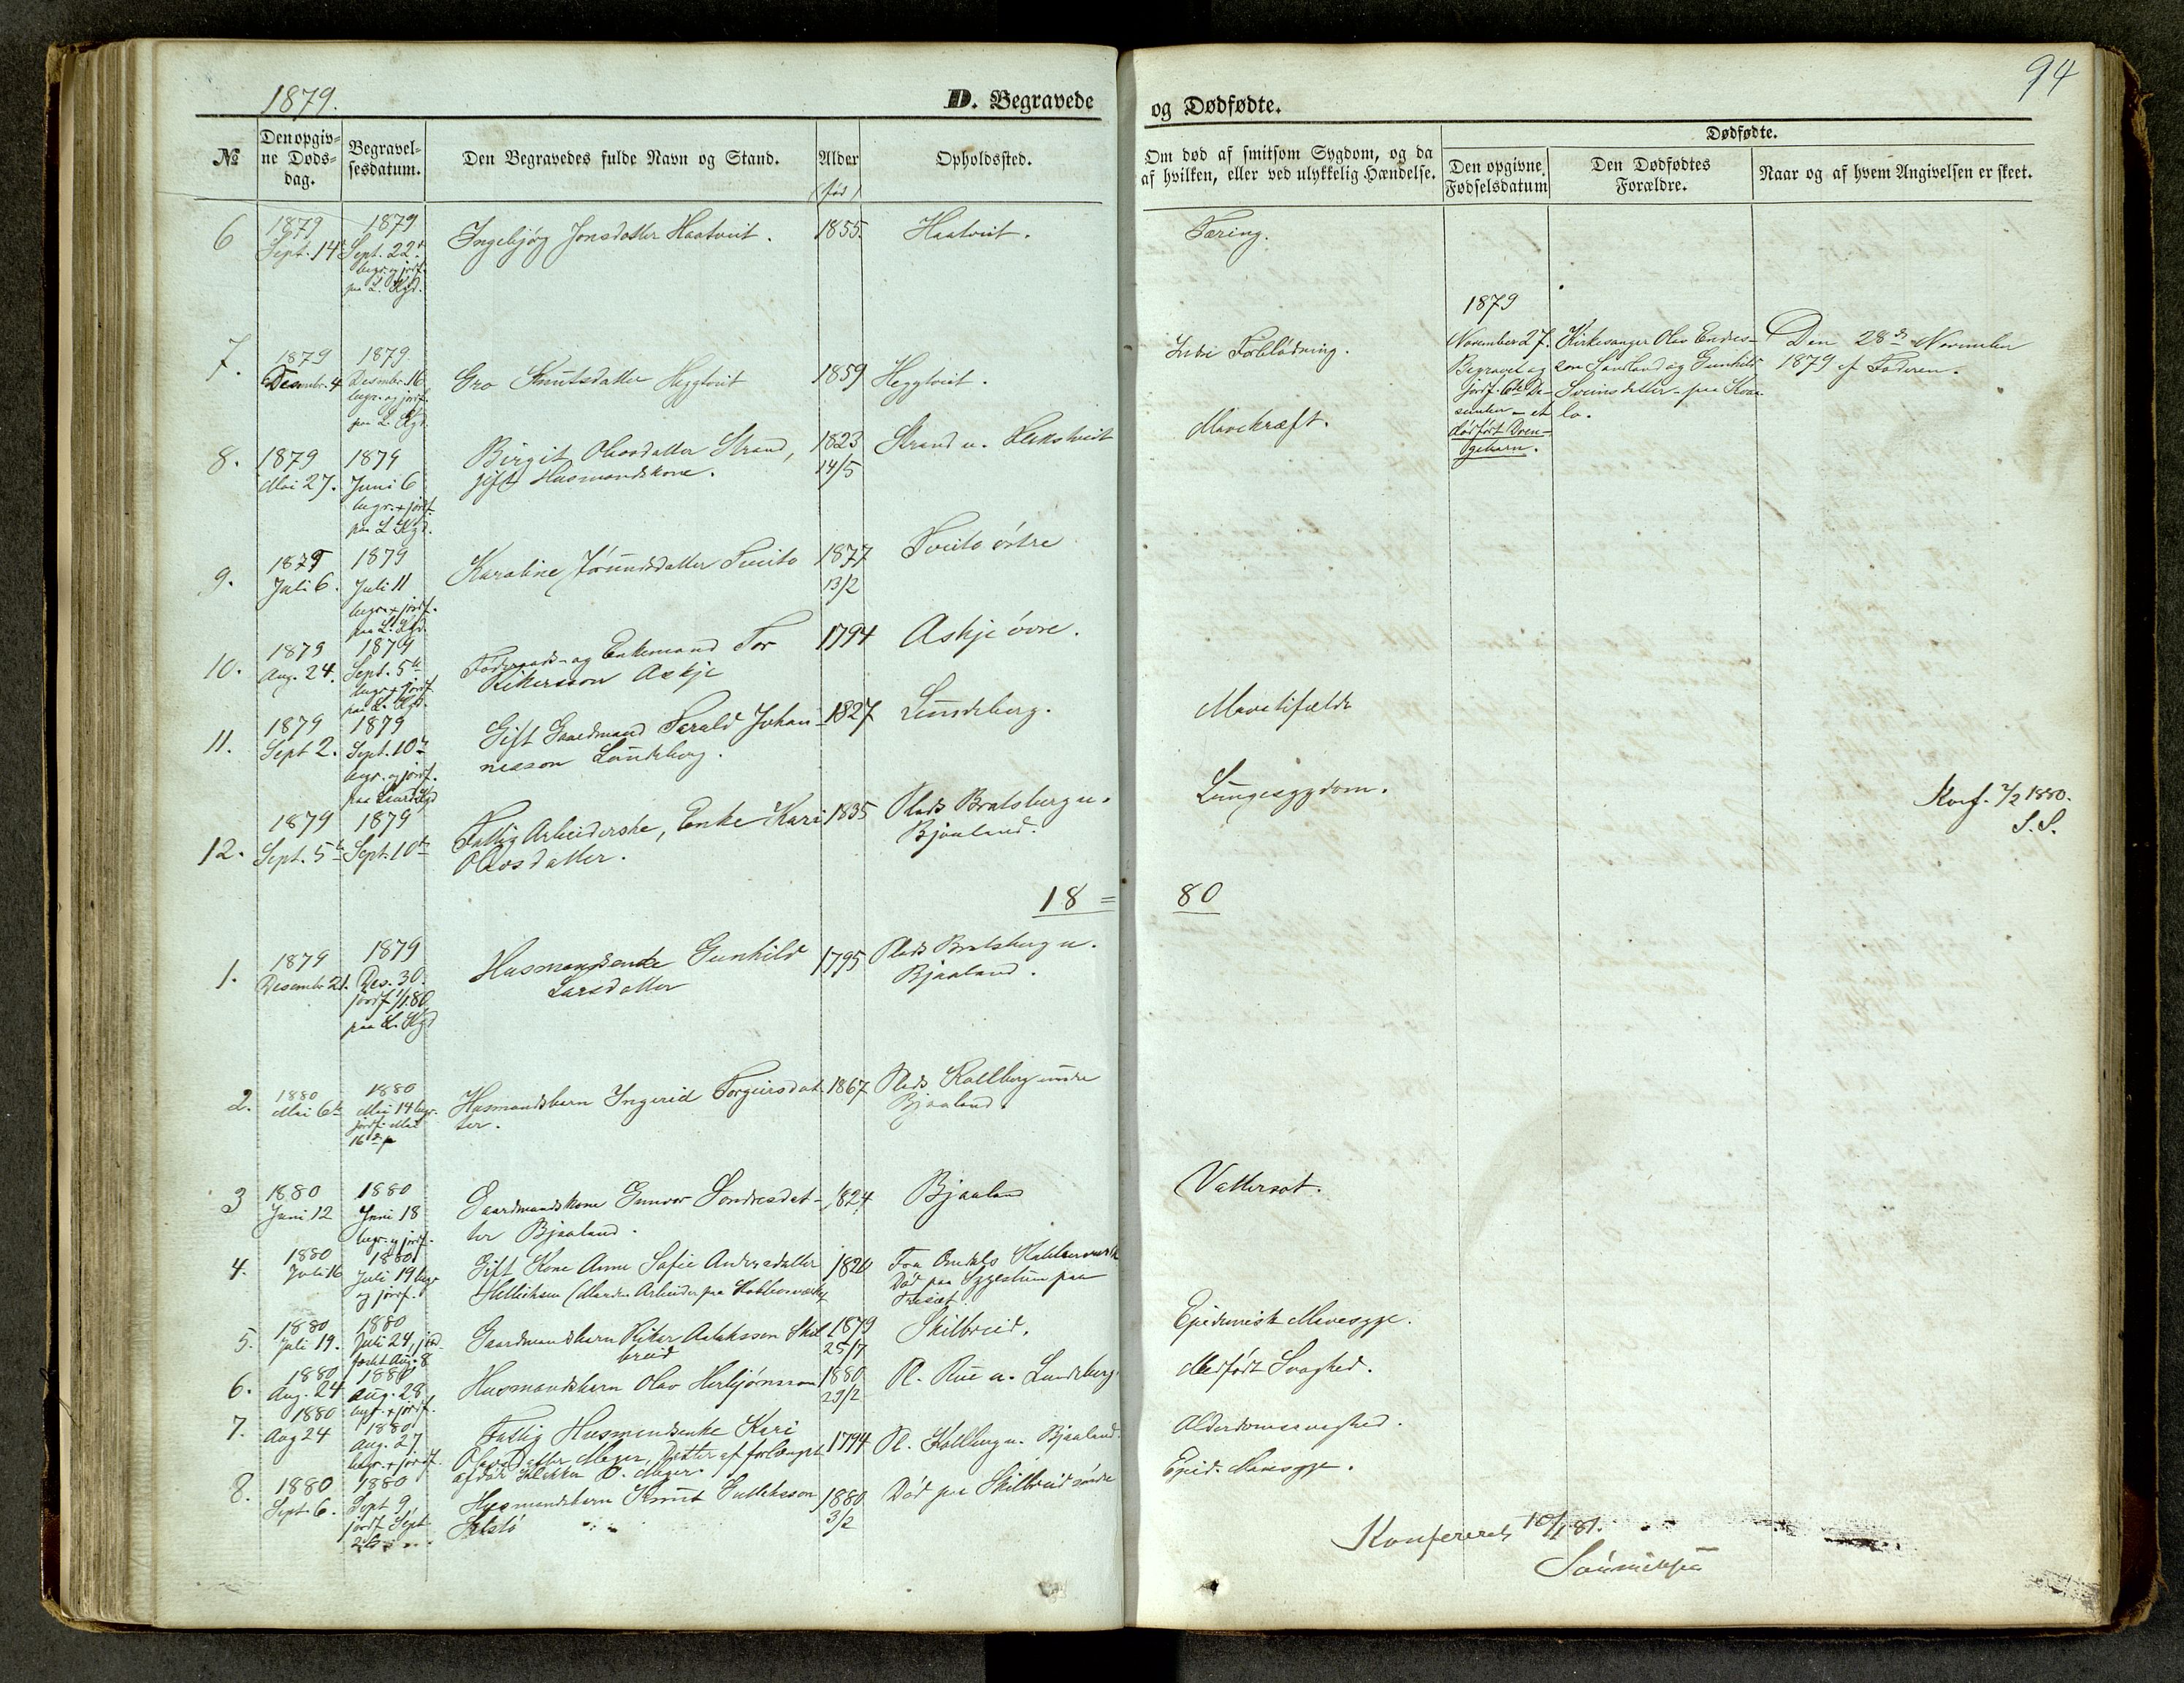 1879.
D. Begravede
og Dødfødte.
94
№
Den opgiv-
ne Døds-
dag.
Begravel-
sesdatum.
Den Begravedes fulde Navn og Stand.
Alder
(fød)
Opholdssted.
Om død af smitsom Sygdom, og da
af hvilken, eller ved ulykkelig Hændelse.
Dødfødte.
Den opgivne
Fødselsdatum
Den Dødfødtes
Forældre.
Naar og af hvem Angivelsen er skeet.
6
1879
Sept. 14
1879
Sept. 22
begr. og jordf.
paa L. Kgd.
Ingebjørg Jonsdatter Haatveit.
1855.
Haatveit.
Tæring.
7.
1879
Desembr. 4
1879.
Desembr. 16
begr. og jordf.
paa L. Kgd.
Gro Knutsdatter Heggtveit
1859
Heggtveit.
Indre Forblødning.
1879
November 27.
Begravet og
jordf. 6te De-
sember - et
dødfødt Dren-
gebarn.
Kirkesanger Olav Endres-
son Sandland og Gunhild
Sveinsdatter - paa
Den 28de November
1879 af Faderen.
8.
1879
Mai 27.
1879
Juni 6
begr. + jordf.
paa L. Kgd.
Birgit Olavsdatter Strand,
gift Husmandskone.
1823
14/5
Strand u.
Mavekræft.
9.
1879
Juli 6.
1879
Juli 11
begr. + jordf.
paa L. Kgd.
Karoline Jørundsdatter Tveito
1877
13/2
Tveito østre
10.
1879
Aug. 24.
1879
Sept. 5te
begr. + jordf.
paa L. Kgd.
Føderaads- og Enkemand Tor
Rikersson Askje
1794
Askje øvre.
11.
1879
Sept 2.
1879
Sept. 10de
begr. og jordf.
paa
Gift Gaardmand Tarald Johan-
nesson Lundeberg.
1827
Lundeberg.
Mavetilfælde
12.
1879
Sept. 5te
1879
Sept. 10de
Fattig Arbeiderske, Enke Kari
Olavsdatter.
1835
Plads Bratsberg u.
Bjaaland.
Lungesygdom.
Konf. 7/2 1880.
S.S.
18 =
80
1.
1879
Desembr 21.
1879
Des. 30.
jordf. 1/1.80
paa L. Kgd
Husmandsenke Gunhild
Larsdatter
1795
Plads Bratsberg u.
Bjaaland.
2.
1880
Mai 6te
1880
Mai 14 begr.
jordf. Mai
16de
Husmandsbarn Ingerid Torgeirsdat-
ter.
1867
Plads Kallberg under
Bjaaland.
3
1880
Juni 12
1880
Juni 18
begr. og jordf.
Gaardmandskone Gunvor Sondresdat-
ter Bjaaland.
1824
Bjaaland
Vattersot.
4.
1880
Juli 16
1880
Juli 19 begr.
og jordf.
Gift Kone Anne Sofie Andersdatter
(Manden Arbeider paa Kobberværket
1820
Fra Omdals Kobberværk
Død paa Sygestuen paa
5.
1880
Juli 19.
1880
Juli 24, jord-
fæstet Aug. 8
Gaardmandsbarn Riker Aslaksson Skil-
breid
1879
25/7
Skilbreid.
Epidemisk Mavesyge.
6.
1880
Aug. 24
1880
Aug. 28
begr. + jordf.
Husmandsbarn Olav Herbjørnsson
1880
29/2
Pl. Rue u. Lundeberg.
Medfødt Svaghed.
7.
1880
Aug 24
1880
Aug. 27
begr. + jordf.
Fattig Husmandsenke Kari
Olavsdatter Meger, Datter af forlængst
afdøde Klokker O. Meger.
1794
Pl. Kallberg u. Bjaaland.
Alderdomssvaghed.
8.
1880
Sept. 6.
1880
Sept 9
jordf. Sept
26
Husmandsbarn Knut
1880
3/2
Død paa Skilbreid søndre
Epid. Mavesyge.
Konfereret 10/1 81.